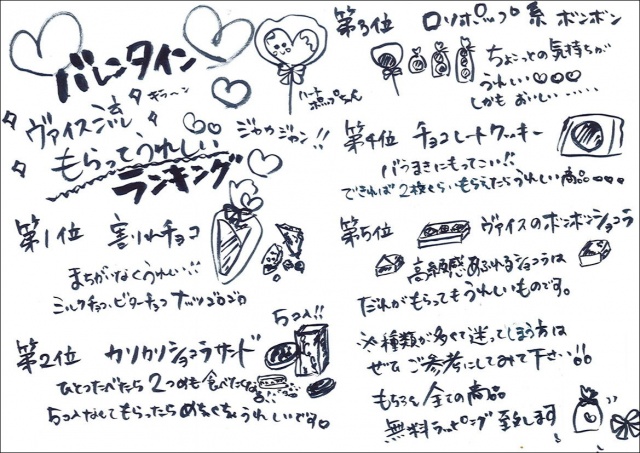 バレンタイン
ヴァイス流
もらってうれしい
ランキング
ジャカジャン!!
ハート
ポップちゃん
第1位 割れチョコ
まちがいなくうれしい!!
ミルクチョコ・ビターチョコ ナッツゴロゴロ
第2位 カリカリショコラサンド
5コ入!!
ひとつたべたら2つめも食べたくなる!!
5コ入なんてもらったらめちゃくちゃうれしいです。
第3位 ロリポップ系 ボンボン
ちょこっとの気持ちが
うれしい♡♡♡
しかも おいしい……
第4位 チョコレートクッキー
バラまきにもってこい!!
できれば2枚くらいもらえたらうれしい商品…
第5位 ヴァイスのボンボンショコラ
高級感あふれるショコラは
だれがもらってもうれしいものです。
※種類が多くて迷ってしまう方は
ぜひ ご参考にしてみて下さい!!
もちろん 全ての商品
無料ラッピング 致します